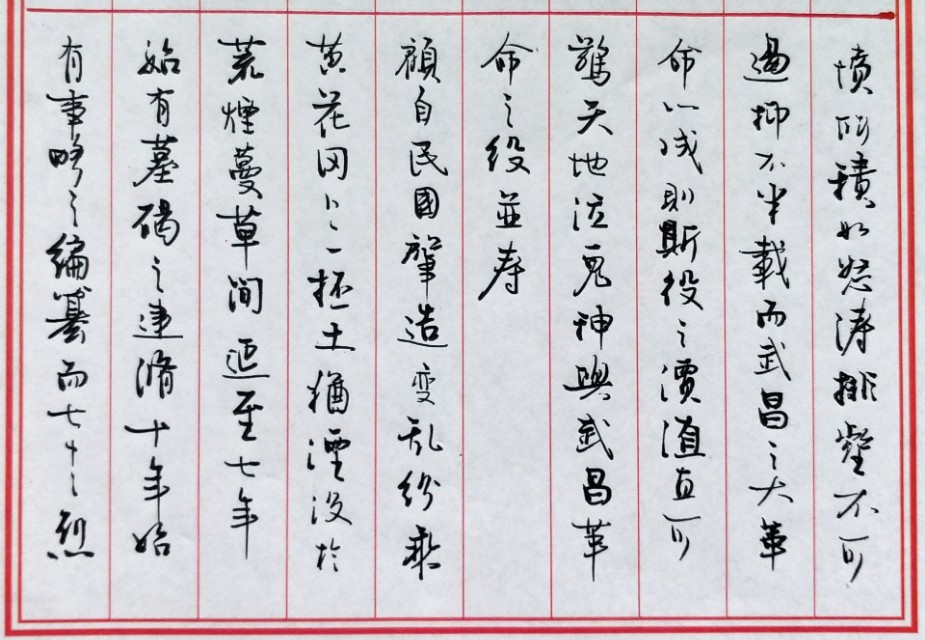 愤所积如怒涛排壑不可
遏抑不半载而武昌之大革
命以成则斯役之價值直可
驚天地泣鬼神與武昌革
命之役並寿
顧自民國肇造变乱纷乘
黄花冈上一抔土猶湮没於
荒煙蔓草间延至七年
始有墓碣之建脩十年始
有事略之编纂而七十二烈